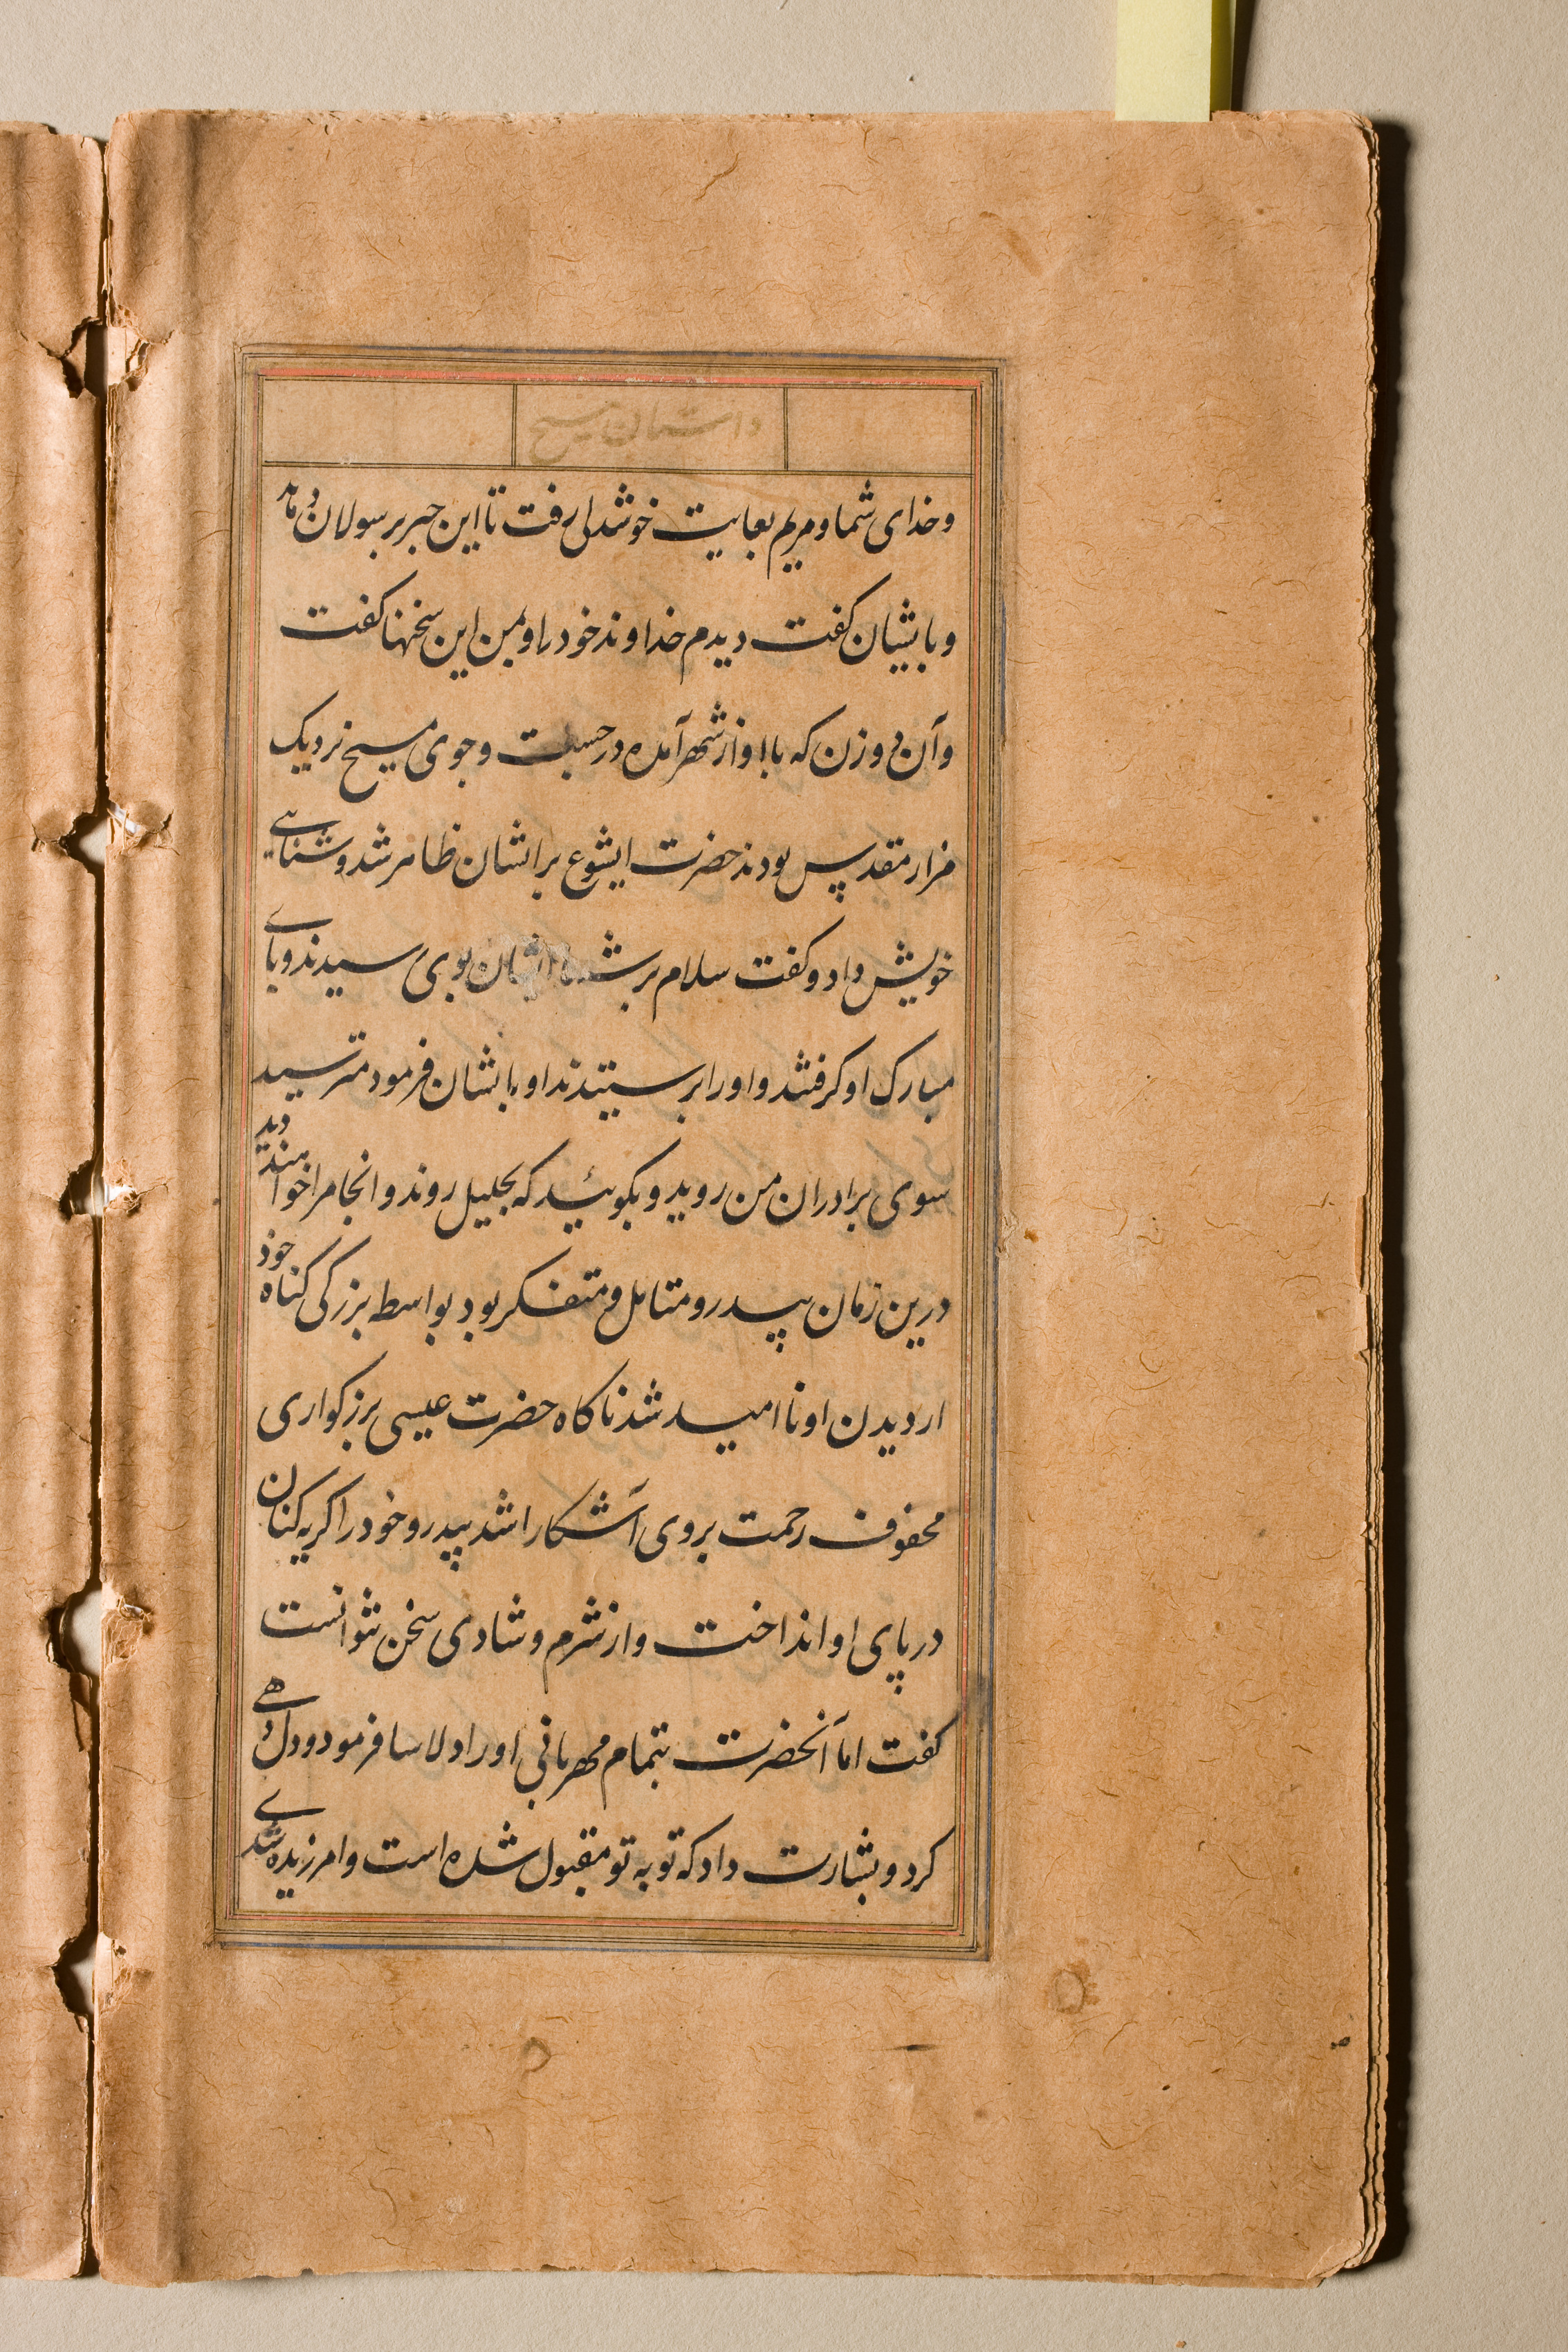 داستان مسیح
وخدای شما و مریم بغایت خوشدل رفت تا این خبر برسولان رساند
و بایشان کفت دیدم خداوند خود را و بمن این سخنها کفت
و آن دو زن که با او از شهر آمده در جست و جوی مسیح نزدیک
مزار مقدس بودند حضرت ایشوع بر ایشان ظاهر شد و شناسایی
خویش داد و کفت سلام بر شما ایشان بوی رسیدند و پای
مبارک او کرفتند و او را پرستیدند او با یشان فرمود مترسید
سوی برادران من روید و بکوئید که بجلیل روند و انجا مرا خواهند دید
درین زمان پیدرو متامل و متفکر بود بواسطه بزرکی کناه خود
از دیدن او نا امید شد ناکاه حضرت عیسی بزرکواری
محفوف رحمت بروی آشکارا شد پیدرو خود را کریه کنان
در پای او انداخت و از شرم و شادی سخن نتوانست
کفت اما آنحضرت بتمام مهربانی او را دلاسا فرمود و دلدهی
کرد و بشارت داد که توبه تو مقبول شده است و امرزیده شدی